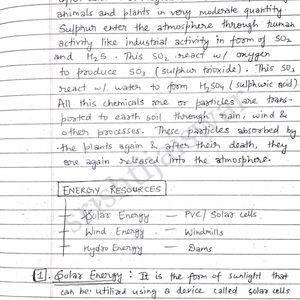 animals and plants in very moderate quantity.
Sulphur enter the atmosphere through human
activity like Industrial activity in form of SO2
and H2S. This SO2 react w/ oxygen
to produce SO3 (sulphur trioxide). This SO3
react w/ water to form H2SO4 (sulphuric acid).
All this chemicals are or particles are trans-
ported to earth soil through rain, wind &
other processes. These particles absorbed by
the plants again & after their death, they
are again released into the atmosphere.
ENERGY RESOURCES
Solar Energy — PVC/ Solar cells
Wind Energy — Windmills
Hydro Energy — Dams
1. Solar Energy: It is the form of sunlight that
can be utilized using a device called solar cells